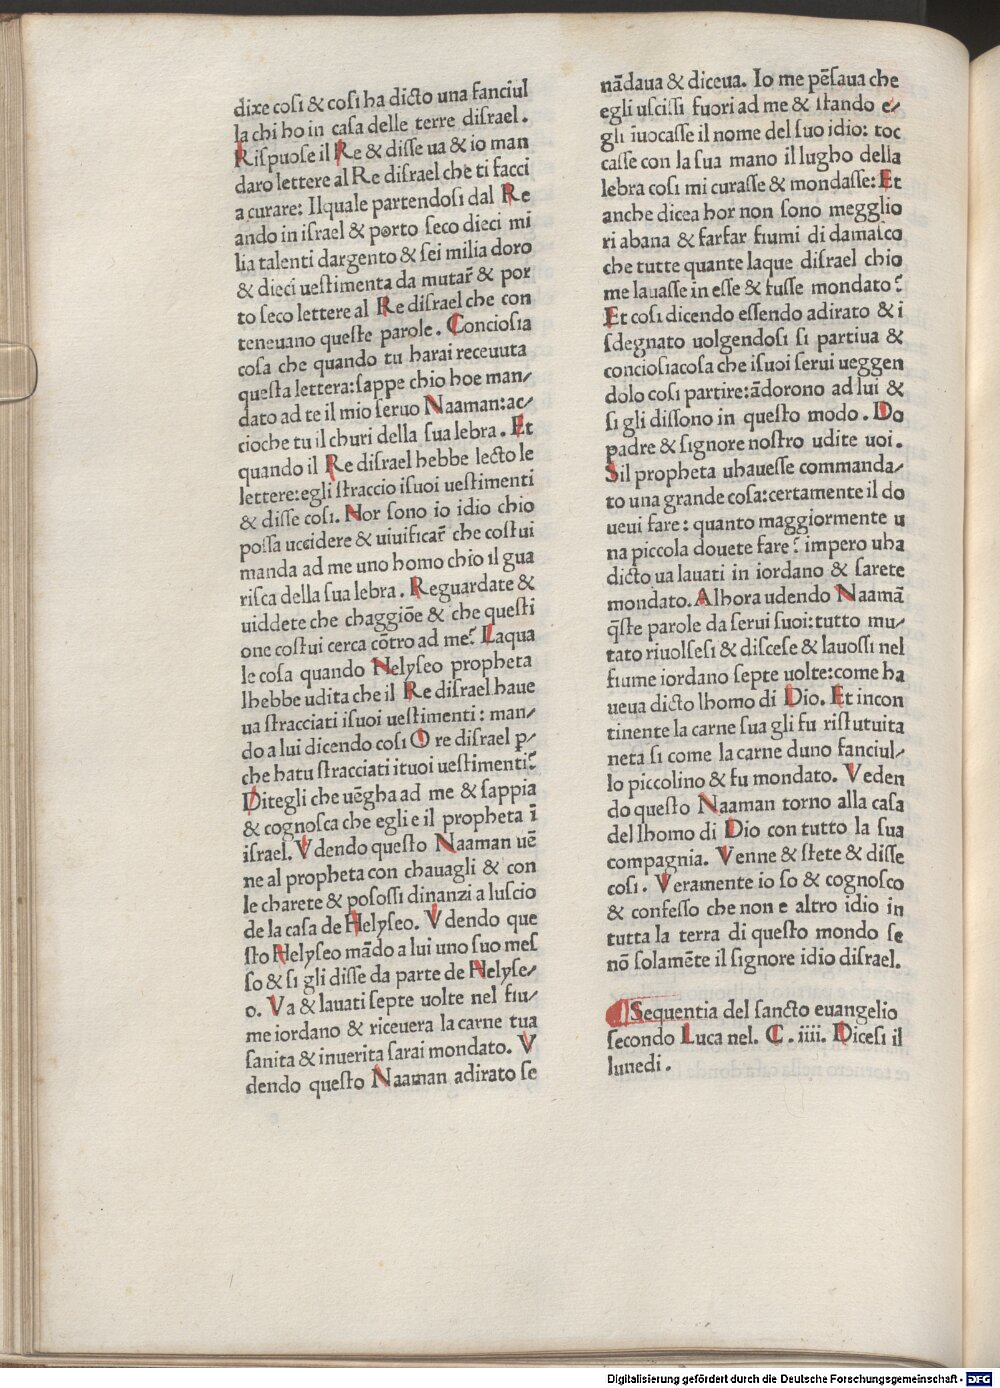 dixe coſi & coſi ha dicto una fanciul
la chi ho in caſa delle terre diſrael.
Riſpuoſe il Re & diſſe ua & io man
daro lettere al Re diſrael che ti facci
a curare: Ilquale partendoſi dal Re
ando in iſrael & porto ſeco dieci mi
lia talenti dargento & ſei milia doro
& dieci ueſtimenta da mutar̃ & por
to ſeco lettere al Re diſrael che con
teneuano queſte parole. Concioſia
coſa che quando tu harai receuuta
queſta lettera:ſappe chio hoe man/
dato ad te il mio ſeruo Naaman:ac/
cioche tu il churi della ſua lebra. Et
quando il Re diſrael hebbe lecto le
lettere:egli ſtraccio iſuoi ueſtimenti
& diſſe coſi. Nor ſono io idio chio
poſſa uccidere & uiuificar̃ che coſtui
manda ad me uno homo chio il gua
riſca della ſua lebra. Reguardate &
uiddete che chaggiōe & che queſti
one coſtui cerca cōtro ad me? Laqua
le coſa quando Nelyſeo propheta
lhebbe udita che il Re diſrael haue
ua ſtracciati iſuoi ueſtimenti: man/
do a lui dicendo coſi O re diſrael p/
che hatu ſtracciati ituoi ueſtimenti?
Ditegli che uēgha ad me & ſappia
& cognoſca che egli e il propheta ī
iſrael. Vdendo queſto Naaman uē
ne al propheta con chauagli & con
le charete & poſoſſi dinanzi a luſcio
de la caſa de Helyſeo. Vdendo que
ſto Helyſeo mādo a lui uno ſuo meſ
ſo & ſi gli diſſe da parte de Helyſe/
o. Va & lauati ſepte uolte nel fiu/
me iordano & riceuera la carne tua
ſanita & inuerita ſarai mondato. V
dendo queſto Naaman adirato ſe
nādaua & diceua. Io me pēſaua che
egli uſciſſi fuori ad me & ſtando e/
gli īuocaſſe il nome del ſuo idio: toc
caſſe con la ſua mano il lugho della
lebra coſi mi curaſſe & mondaſſe: Et
anche dicea hor non ſono megglio
ri abana & farfar fiumi di damaſco
che tutte quante laque diſrael chio
me lauaſſe in eſſe & fuſſe mondato?
Et coſi dicendo eſſendo adirato & i
ſdegnato uolgendoſi ſi partiua &
concioſiacoſa che iſuoi ſerui ueggen
dolo coſi partire:ādorono ad lui &
ſi gli diſſono in queſto modo. Do
padre & ſignore noſtro udite uoi.
Sil propheta uhaueſſe commanda/
to una grande coſa:certamente il do
ueui fare: quanto maggiormente u
na piccola douete fare? impero uha
dicto ua lauati in iordano & ſarete
mondato. Alhora udendo Naamā
q̄ſte parole da ſerui ſuoi:tutto mu/
tato riuolſeſi & diſceſe & lauoſſi nel
fiume iordano ſepte uolte:come ha
ueua dicto lhomo di Dio. Et incon
tinente la carne ſua gli fu riſtutuita
neta ſi come la carne duno fanciul/
lo piccolino & fu mondato. Veden
do queſto Naaman torno alla caſa
del lhomo di Dio con tutto la ſua
compagnia. Venne & ſtete & diſſe
coſi. Veramente io ſo & cognoſco
& confeſſo che non e altro idio in
tutta la terra di queſto mondo ſe
nō ſolamēte il ſignore idio diſrael.
Sequentia del ſancto euangelio
ſecondo Luca nel. C. iiii. Diceſi il
lunedi.
Digitalisierung gefördert durch die Deutsche Forschungsgemeinschaft - DFG